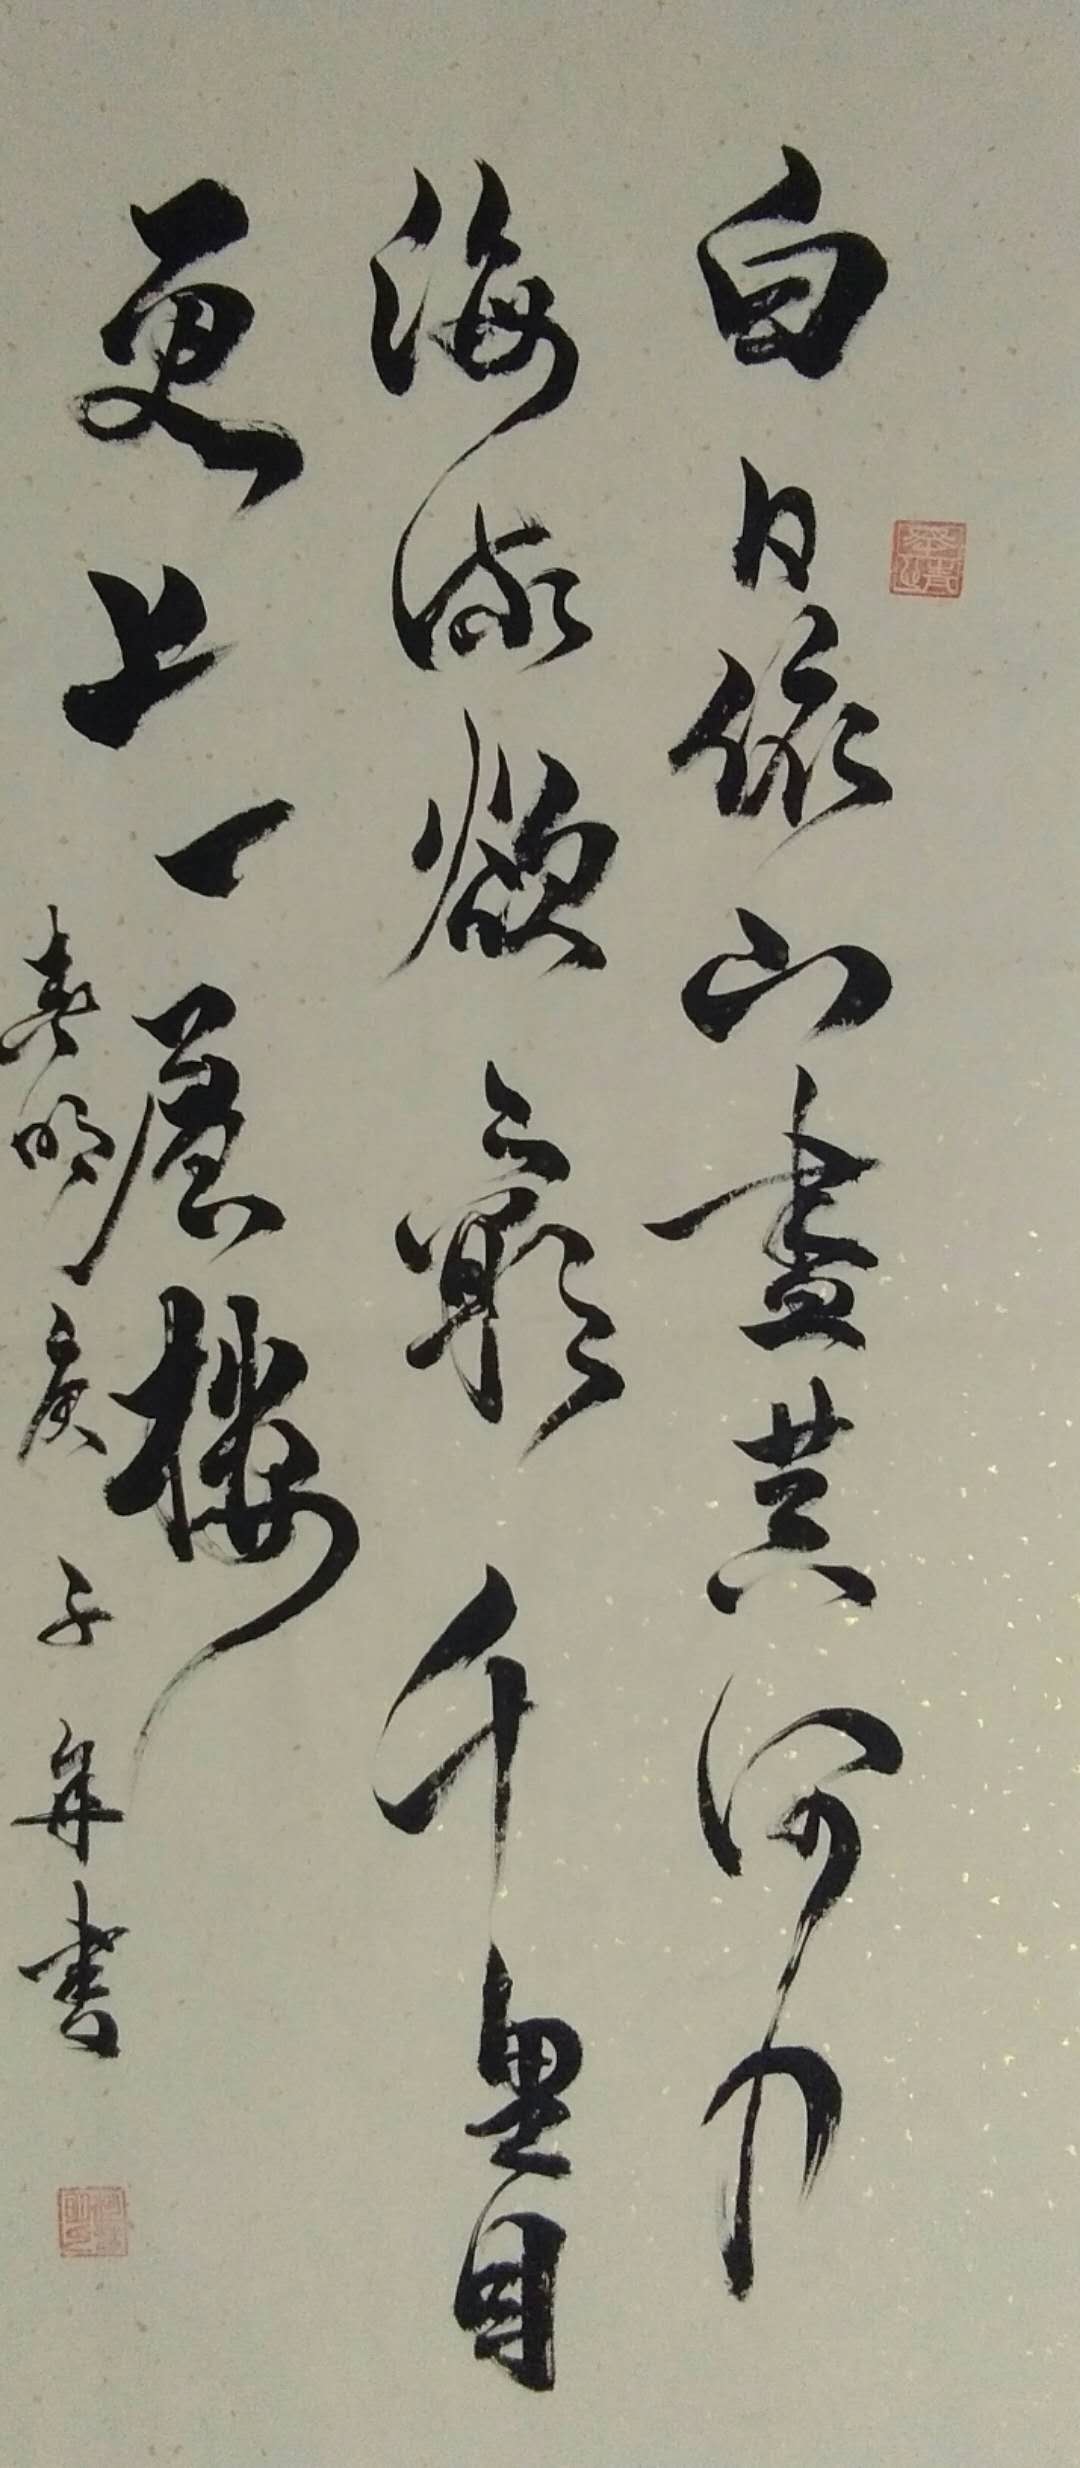 白日依山盡黄河入
海流欲窮千里目
更上一層樓
春明庚子年書